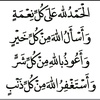 الْحَمْدُ لِلَّهِ عَلَى كُلِّ نِعْمَةٍ
وَأَسْأَلُ اللَّهَ مِنْ كُلِّ خَيْرٍ
وَأَعُوذُ بِاللَّهِ مِنْ كُلِّ شَرٍّ
وَأَسْتَغْفِرُ اللَّهَ مِنْ كُلِّ ذَنْبٍ